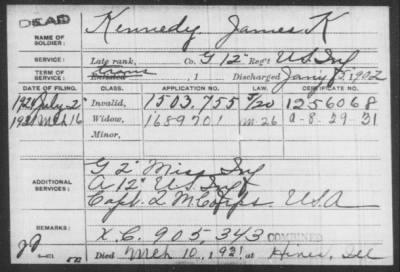 DEAD
NAME OF SOLDIER: Kennedy, James K
SERVICE: Late rank, Co. G 12" Reg't U.S. Inf
TERM OF SERVICE: Enlisted , 1 Discharged Jany , 1902
DATE OF FILING. CLASS. APPLICATION NO. LAW. CERTIFICATE NO.
192 July 2" Invalid, 1503,755 1256068
1921 Mch 16 Widow, 1689701 M-26 a-8-29-31
Minor,
ADDITIONAL SERVICES:
G 2" Miss Inf
A 12" U.S. Inf
Capt. Q M Corps U.S.A
REMARKS:
X.C. 905,343 COMBINED
Died Mch 10, 1921 at Hines, Ill